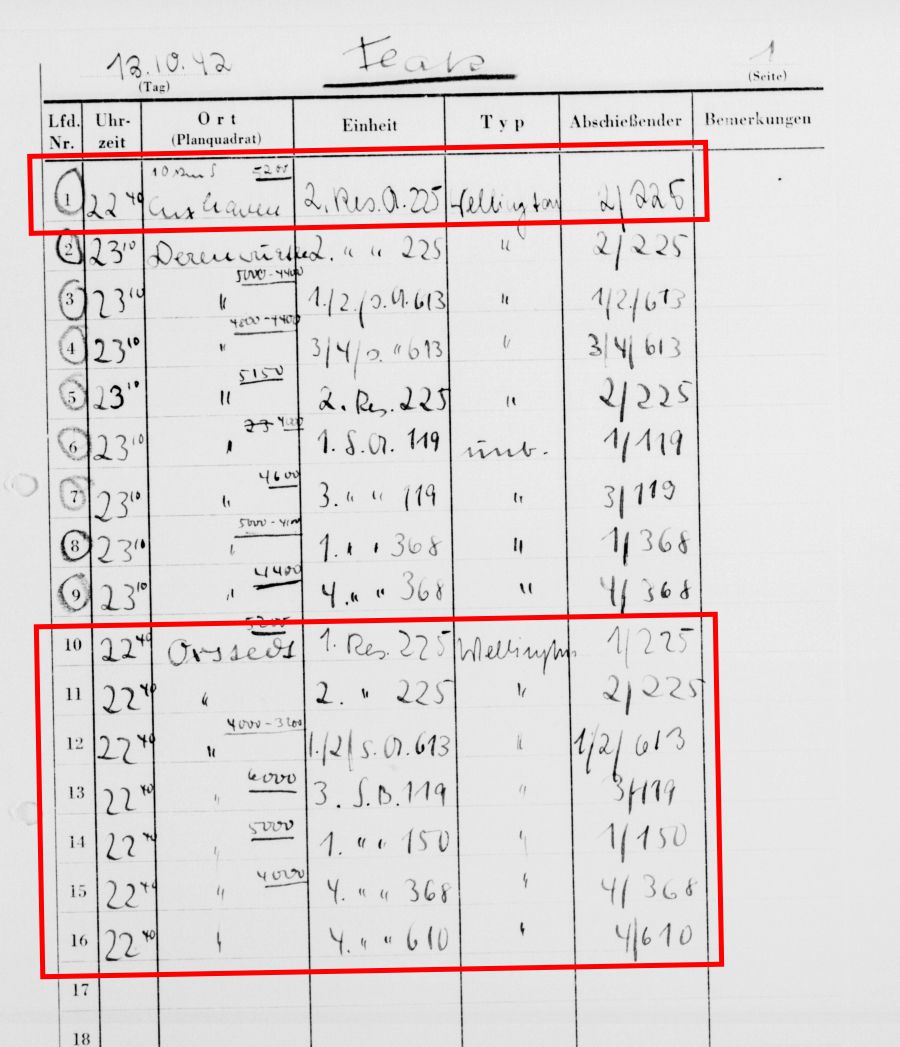 13.10.42 Flak 1
(Tag) (Seite)
Lfd. Nr. Uhrzeit Ort (Planquadrat) Einheit Typ Abschießender Bemerkungen
1 22 40 Cuxhaven 2. Res. A. 225 Wellington 2/225
2 23 10 2. " " 225 " 2/225
5000-4400
3 23 10 " 1./2./s.A. 613 " 1/2/613
4800-4400
4 23 10 " 3/4/s. " 613 " 3/4/613
5150
5 23 10 " 2. Res. 225 " 2/225
4000
6 23 10 " 1. S.A. 119 unb. 1/119
4600
7 23 10 " 3. " " 119 " 3/119
5000-4100
8 23 10 " 1. " " 368 " 1/368
4400
9 23 10 " 4. " " 368 " 4/368
5200
10 22 40 1. Res. 225 Wellington 1/225
11 22 40 " 2. " 225 " 2/225
4000-3200
12 22 40 " 1./2/s.A. 613 " 1/2/613
6000
13 22 40 " 3. S.B. 119 " 3/119
5000
14 22 40 " 1. " " 150 " 1/150
4000
15 22 40 " 4. " " 368 " 4/368
16 22 40 " 4. " " 610 " 4/610
17
18